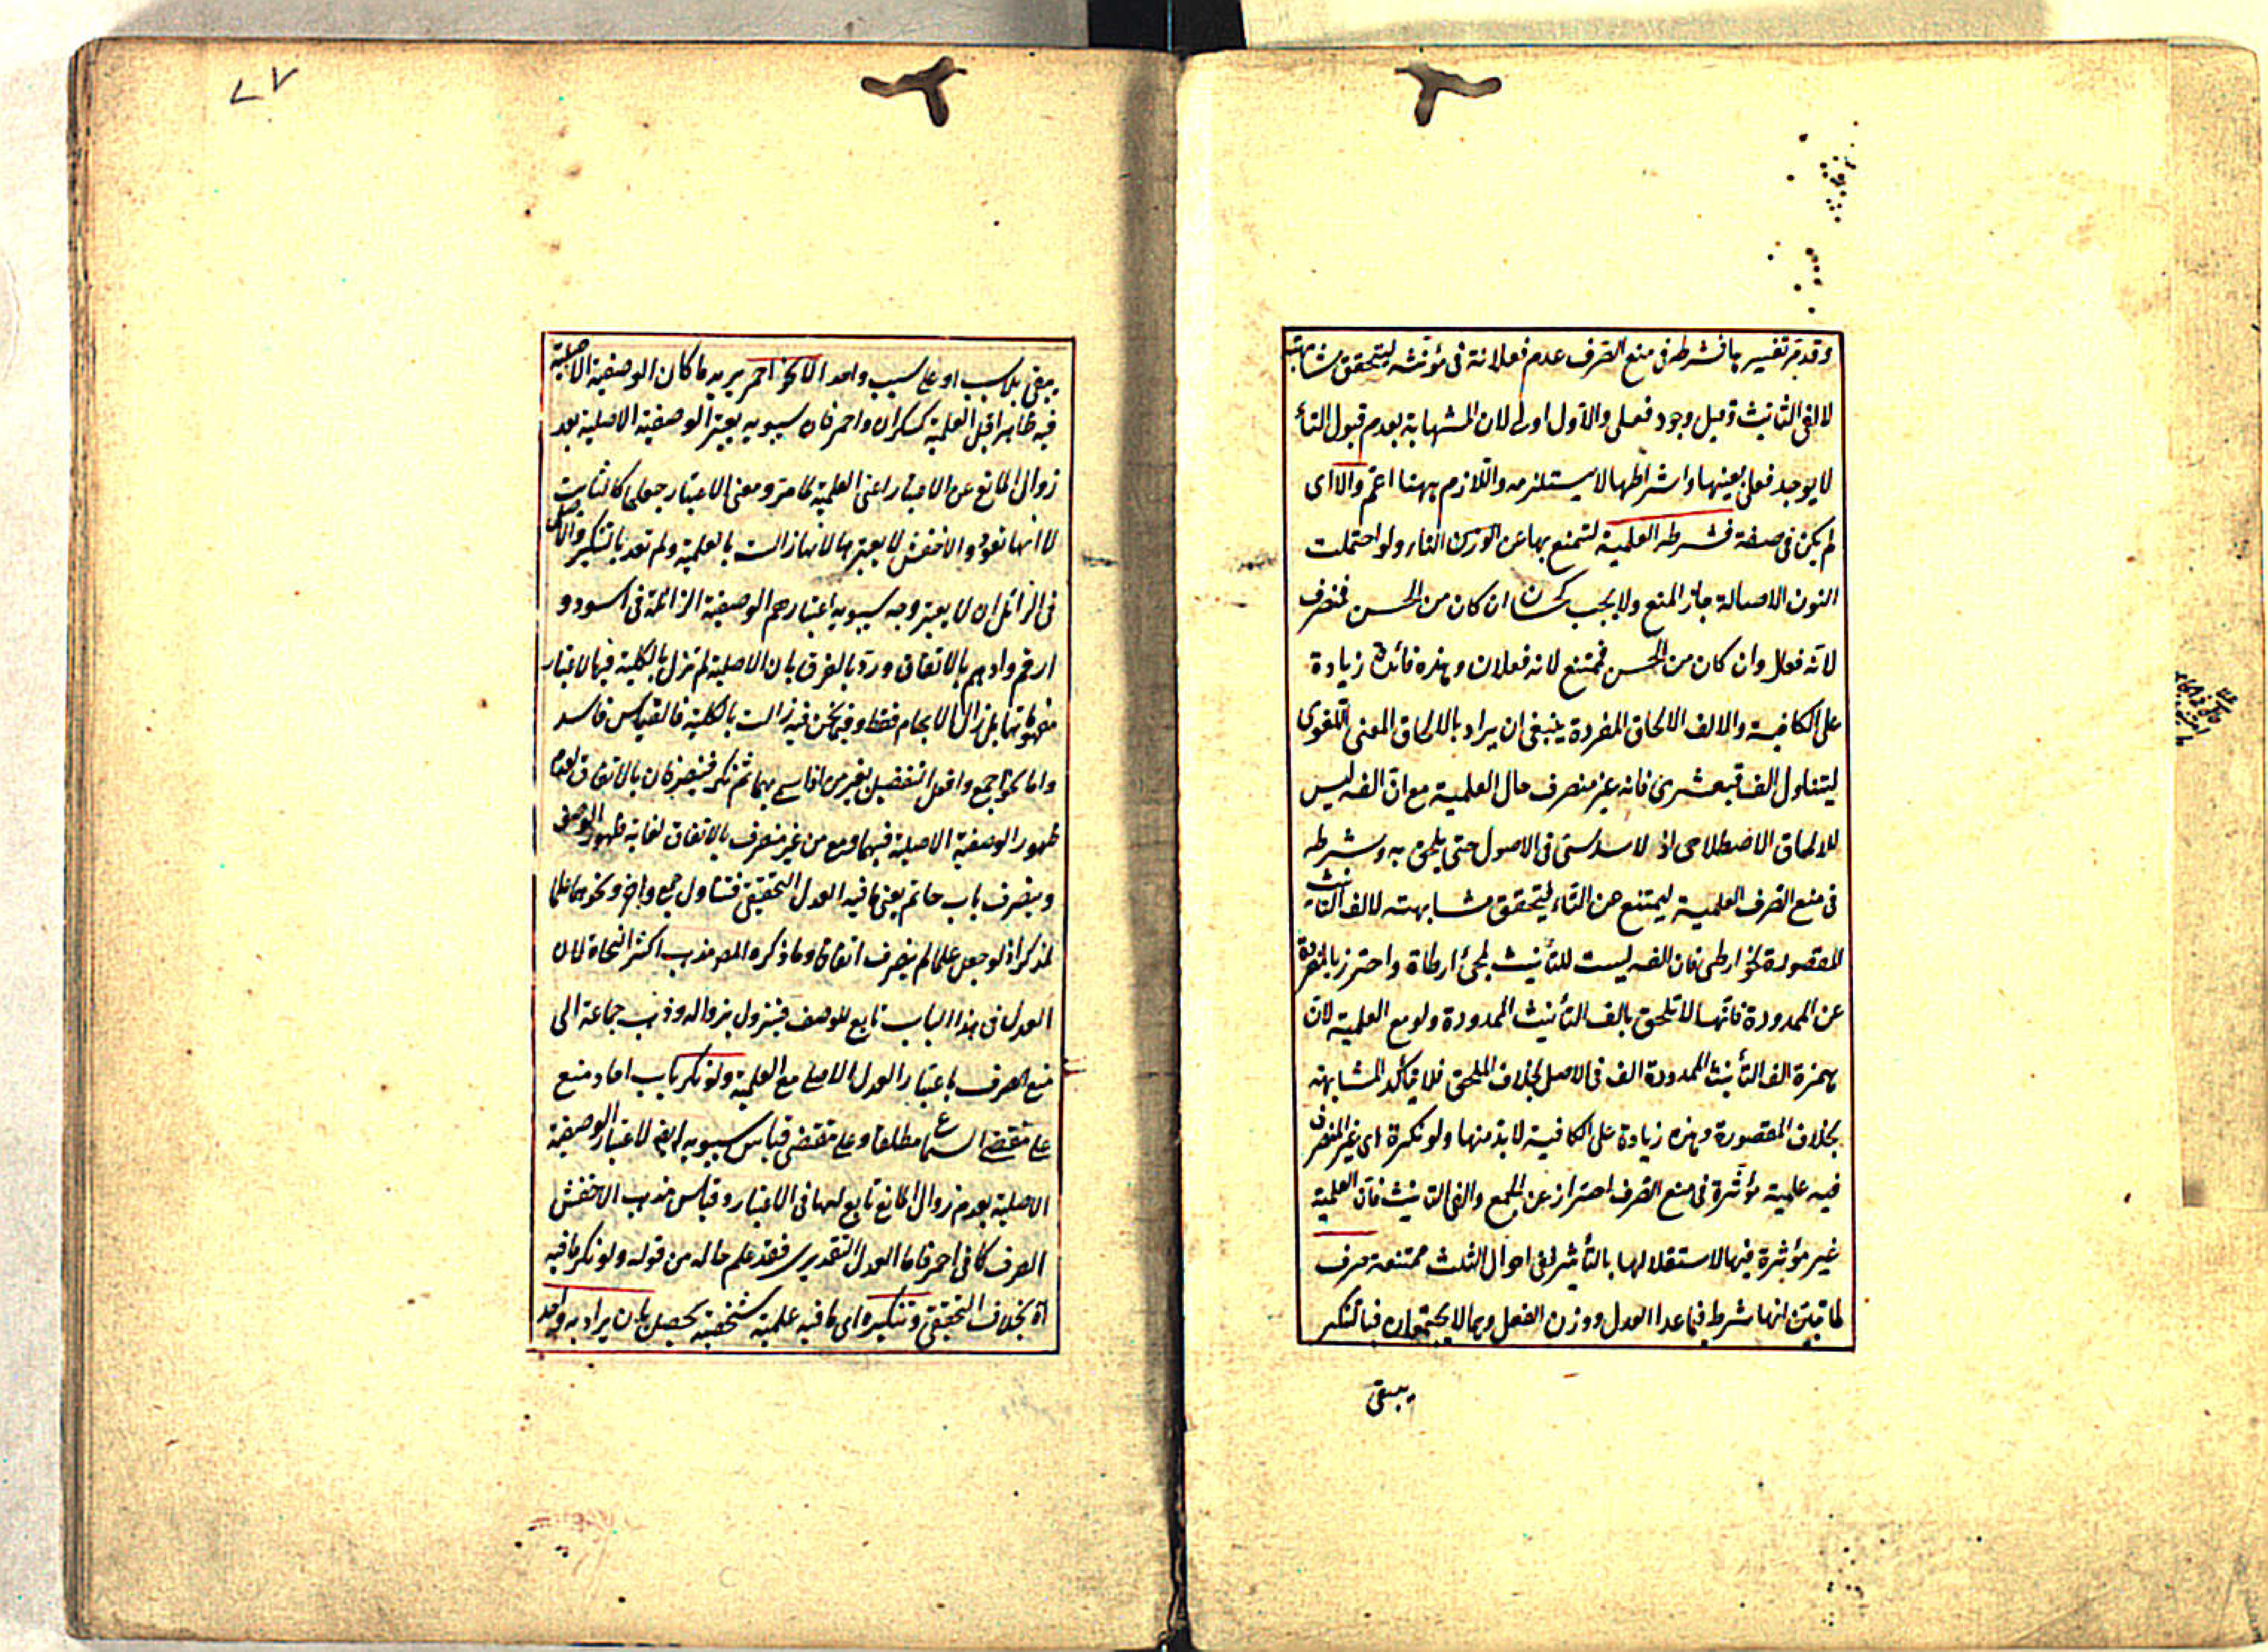 وقد مر تفسيرها فشرطه فى منع الصرف عدم فعلانة فى مؤنثه ليتحقق مشابهته
لالفى التانيث وقيل وجود فعلى والاول اولى لان المشابهة بعدم قبول التاء
لا بوجود فعلى بعينها واشتراطها لا يستلزمه واللازم ههنا اعم والا اى
لم يكن فى صفة فشرطه العلمية لتمنع بها عن الورود التاء ولو احتملت
النون الاصالة جاز المنع ولا يجب كحسان ان كان من الحسن فمنصرف
لانه فعال وان كان من الحس فممتنع لانه فعلان وهذه فائدة زيادة
على الكافية والالف الالحاق المفردة ينبغى ان يراد بالالحاق المعنى اللغوى
ليتناول الف قبعثرى فانه غير منصرف حال العلمية مع ان الفه ليس
للالحاق الاصطلاحى اذ لا سداسى فى الاصول حتى يلحق به وشرطه
فى منع الصرف العلمية ليمتنع عن التاء ليتحقق مشابهته لالف التانيث
المقصورة نحو ارطى فان الفه ليست للتأنيث لمجئ ارطاة واحترز بالمفردة
عن الممدودة فانها لا تلحق بالف التأنيث الممدودة ولو مع العلمية لان
همزة الف التأنيث الممدودة الف فى الاصل بخلاف الملحق فلا يتأكد المشابهة
بخلاف المقصورة وهذه زيادة على الكافية لا بد منها ولو نكرة اى غير المنصرف
فيه علمية مؤثرة فى منع الصرف احتراز عن الجمع والفى التانيث فان العلمية
غير مؤثرة فيها لاستقلالها بالتأثير ففى احوال الثلث ممتنعة صرف
لما تبين انها شرط فيما عدا العدل ووزن الفعل وهما لا يجتمعان فبالتنكير
يبقى
٧٧
يبقى بلا سبب او على سبب واحد الا نحو احمر يريد ما كان الوصفية الاصلية
فيه ظاهرا قبل العلمية كسكران واحمر فان سيبويه يعتبر الوصفية الاصلية بعد
زوال المانع عن الاعتبار اعنى العلمية كما مر ومعنى الاعتبار جعلها كالثابت
لا انها تعود والاخفش لا يعتبرها لانها زالت بالعلمية ولم تعد بالتنكير والاصل
فى الزائل ان لا يعتبر وجه سيبويه اعتبارهم الوصفية الزائلة فى اسود و
ارقم وادهم بالاتفاق ورد بالفرق بان الاصلية لم تزل بالكلية فيها لاعتبار
مفهوماتها بل زال الابهام فقط وفيما نحن فيه زالت بالكلية فالقياس فاسد
واما نحو اجمع وافعل التفضيل بغير من اذا سمى بهما ثم نكر فينصرفان بالاتفاق لعدم
ظهور الوصفية الاصلية فيهما ومع من غير منصرف بالاتفاق لغاية ظهور الوصف
وينصرف باب حاتم يعنى ما فيه العدل التحقيقى فتناول جمع واخر ونحوهما علما
لمذكر اذ لو جعل علما لم ينصرف اتفاقا وما ذكره المص مذهب اكثر النحاة لان
العدل فى هذا الباب تابع للوصف فيزول بزواله وذهب جماعة الى
منع الصرف باعتبار العدل الاصلى مع العلمية ولو نكر باب احاد منع
على مقتضى السماع مطلقا وعلى مقتضى قياس سيبويه ايضا لاعتبار الوصفية
الاصلية بعد زوال المانع تابع لها فى الاعتبار وقياس مذهب الاخفش
الصرف كما فى احمر فاما العدل التقديرى فقد علم حاله من قوله ولو نكر ما فيه
اه بخلاف التحقيقى وتنكيره اى ما فيه علمية شخصية يحصل بان يراد به واحد